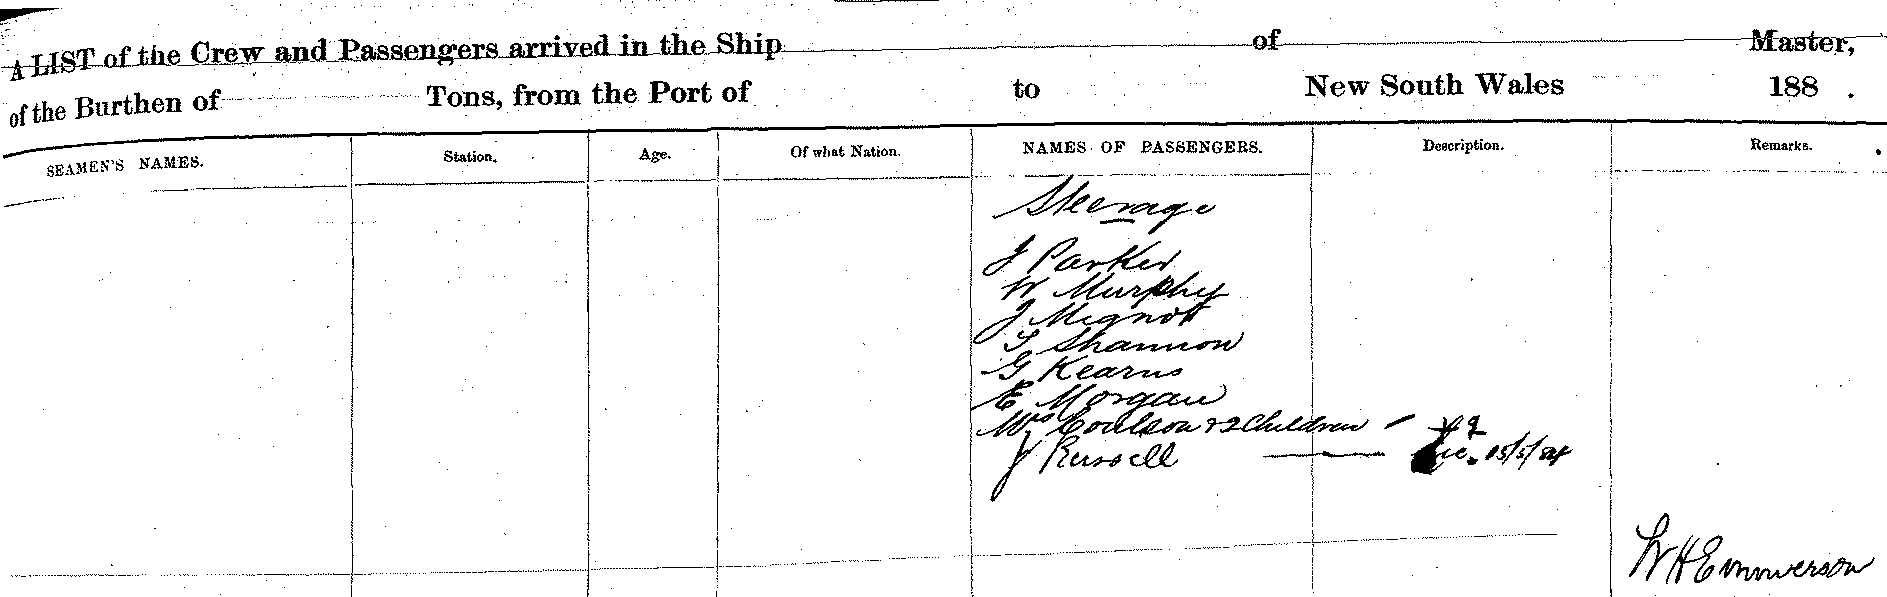 A LIST of the Crew and Passengers arrived in the Ship of Master,
of the Burthen of Tons, from the Port of to New South Wales 188 .
SEAMEN'S NAMES. Station. Age. Of what Nation. NAMES OF PASSENGERS. Description. Remarks.
Steerage
J Parker
W Murphy
J Mignot
T Shannon
G Kearns
E Morgan
Mrs Coulson & 2 Children -
J Russell — 15/5/84
W H Emmerson